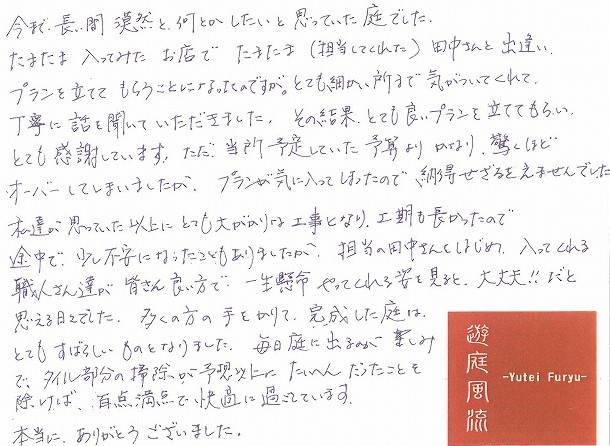 今まで、長い間 漠然と、何とかしたいと思っていた庭でした。
たまたま 入ってみた お店で たまたま (担当してくれた) 田中さんと出逢い、
プランを立てて もらうことになったのですが。とても細かい所まで 気がついてくれて、
丁寧に 話を聞いていただきました。 その結果、とても良いプランを立ててもらい、
とても 感謝しています。ただ、当所予定していた 予算より かなり、驚くほど
オーバーしてしまいましたが、 プランが気に入ってしまったので 納得せざるをえませんでした
私達が 思っていた以上に とても大がかりな工事となり、工期も長かったので
途中で、少し不安になったこともありましたが、 担当の田中さんをはじめ、入ってくれる
職人さん達が 皆さん良い方で、一生懸命 やってくれる姿を見ると、大丈夫!! だと
思える日々でした。 多くの方の手をかりて、完成した庭は、
とてもすばらしいものとなりました。 毎日庭に出るのが 楽しみ
で、タイル部分の掃除が予想以上に たいへんだったことを
除けば、百点満点で快適に過ごしています。
本当に、ありがとうございました。
遊庭風流
-Yutei Furyu-